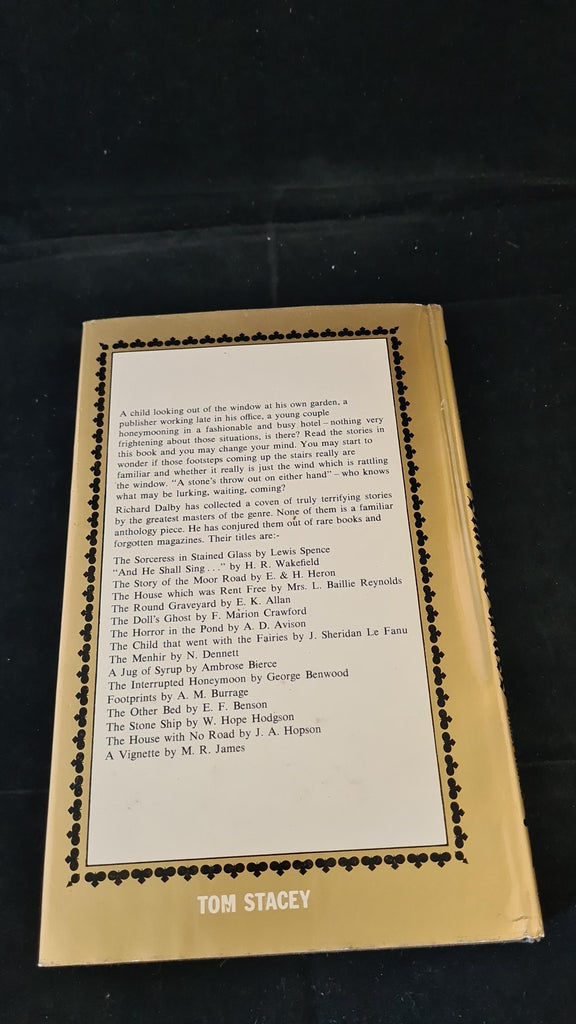 A child looking out of the window at his own garden, a
publisher working late in his office, a young couple
honeymooning in a fashionable and busy hotel – nothing very
frightening about those situations, is there? Read the stories in
this book and you may change your mind. You may start to
wonder if those footsteps coming up the stairs really are
familiar and whether it really is just the wind which is rattling
the window. “A stone's throw out on either hand” – who knows
what may be lurking, waiting, coming?
Richard Dalby has collected a coven of truly terrifying stories
by the greatest masters of the genre. None of them is a familiar
anthology piece. He has conjured them out of rare books and
forgotten magazines. Their titles are:-
The Sorceress in Stained Glass by Lewis Spence
“And He Shall Sing . . .” by H. R. Wakefield
The Story of the Moor Road by E. & H. Heron
The House which was Rent Free by Mrs. L. Baillie Reynolds
The Round Graveyard by E. K. Allan
The Doll's Ghost by F. Marion Crawford
The Horror in the Pond by A. D. Avison
The Child that went with the Fairies by J. Sheridan Le Fanu
The Menhir by N. Dennett
A Jug of Syrup by Ambrose Bierce
The Interrupted Honeymoon by George Benwood
Footprints by A. M. Burrage
The Other Bed by E. F. Benson
The Stone Ship by W. Hope Hodgson
The House with No Road by J. A. Hopson
A Vignette by M. R. James
TOM STACEY